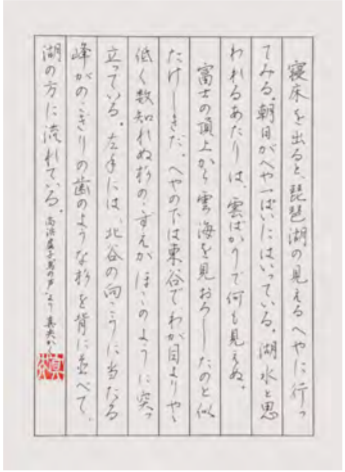 寝床を出ると、琵琶湖の見えるへやに行っ
てみる。朝日がへや一ぱいにはいっている。湖水と思
われるあたりは、雲ばかりで何も見えぬ。
富士の頂上から雲海を見おろしたのと似
たけしきだ。へやの下は東谷でわが目よりやゝ
低く数知れぬ杉のこずえがほこのように突っ
立っている。左手には、北谷の向こうに当たる
峰がのこぎりの歯のような杉を背に並べて、
湖の方に流れている。高浜虚子馬の声より 真央かく